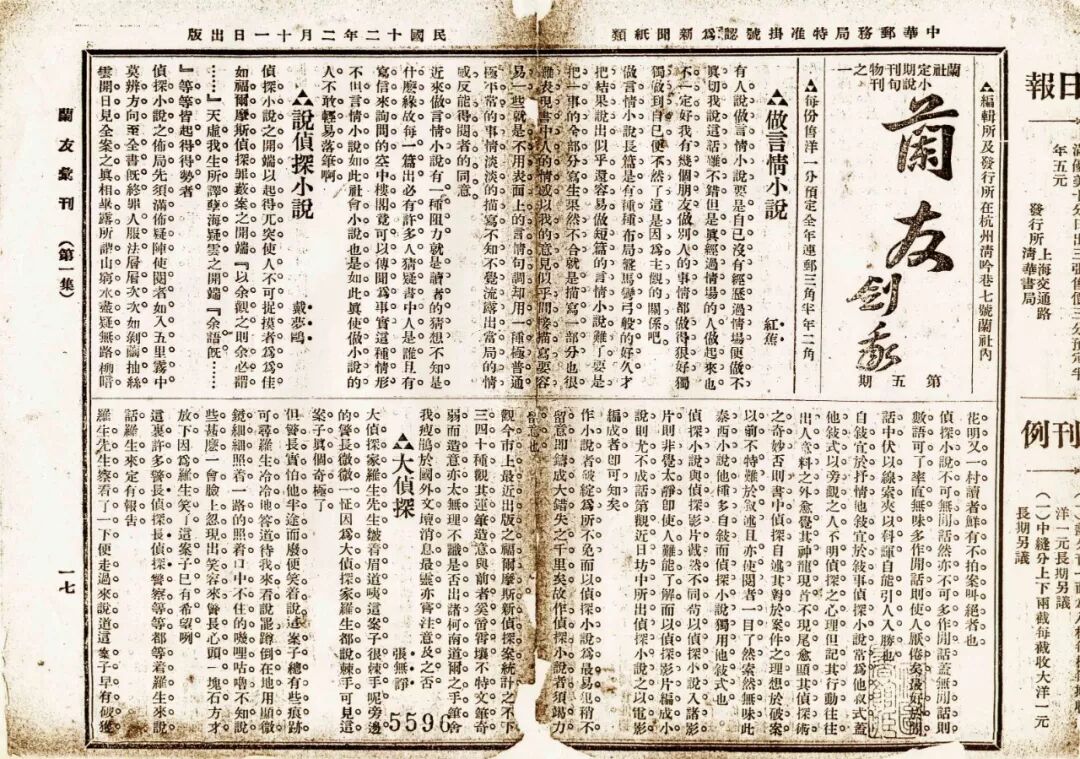 中華郵務局特准掛號認爲新聞紙類
民國十二年二月十一日出版
蘭社定期小說旬刊物之一
蘭友
劍我
第五期
▲編輯所及發行所在杭州清吟巷七號蘭社內
▲每份售洋一分預定全年連郵三角半年二角
做言情小說
紅蕉
有人說做言情小說要是自己沒有經歷過情場便做不
眞切我說這話雖不錯但是眞經過情場的人做起來也
不一定好我有幾個朋友做別人的事情都做得很好獨
獨做到自己便不然了這是因爲主觀的關係吧
做言情小說長篇是有種種布局盤馬彎弓般的好久才
把結果說出似乎還容易做短篇的言情小說難了要是
把一事的全部分寫生果然不合就是描寫一部分也很
難表現書中人的情或以我的意見似乎間接描寫要容
易一些就是不用表面上的言情句調却用一種極普通
極平常的事情淡淡的描寫不知不覺流露出當局的情
感反能得閱者的同意
近來做言情小說有一種阻力就是讀者的猜想不知是
什麽緣故每一篇出必有許多人猜疑書中人是誰且有
寫信來詢問的空中樓閣竟可以傳聞爲事實這種情形
不但言情小說如此社會小說也是如此眞使做小說的
人不敢輕易落筆啊
說偵探小說
戴夢鷗
偵探小說之開端以起得兀突使人不可捉摸者爲爲佳
如福爾摩斯偵探罪藪案之開端『以余觀之則余必謂
……』天虛我生所譯孽海疑雲之開端『余語旣……
』等等皆起得得勢者
偵探小說之佈局先須滿佈疑陣使閱者如入五里霧中
莫辨方向至全書旣終罪人服法層層次次如剝繭抽絲
雲開日見全案之眞相畢露所謂山窮水盡疑無路柳暗
花明又一村讀者鮮有不拍案叫絕者也
偵探小說不可無閒話然亦不可多作閒話蓋無閒話則
數語可了率直無味多作閒話則使人厭倦矣最好於閒
話中伏以線索夾以科諢自能引人入勝也
自敍宜於抒情他敍宜於敍事偵探小說常爲他敍式蓋
他敍式以旁觀之人不明偵探之心理但記其行動往往
出人意料之外愈覺其神龍現首不現尾愈顯其偵探術
之奇妙否則書中偵探自述其對於案件之理想於破案
以前不特難於敍述且亦使閱者一目了然索然無味此
泰西小說他種多自敍而偵探小說獨用他敍式也
偵探小說與偵探影片截然不同苟以偵探小說入諸影
片則非覺太靜卽使人不能了解而以偵探影片編成小
說則尤不成話第觀近日坊中所出偵探小說之以電影
編成者卽可知矣
作小說者破綻爲所不免而以偵探小說爲最易犯稍不
留意卽鑄成大錯失之千里矣故作偵探小說者須竭力
留意也
觀今市上最近出版之福爾摩斯新偵探案統計之不下
三四十種觀其運筆造意與前者奚啻霄壤不特文筆奇
弱而造意亦太無理不識是否出諸柯南道爾之手筆會
我瘦鵑於國外文壇消息最靈亦嘗注意及之否
大偵探
張無諍
大偵探家羅生先生皺着眉道咦這案子很棘手呢旁邊
的警長微微一怔因爲大偵探家羅生都說棘手可見這
案子眞個奇極了
但警長實怕他半途而廢便笑着說這案子總有些痕跡
可尋羅生冷冷地答道待我來看說罷蹲倒在地用顯微
鏡細細照着一路的照着口中不住的嘰哩咕嚕不知說
些甚麽一會臉上忽現出笑容來警長心頭一塊石方才
放下因爲羅生笑了這案子已有希望咧
這裏許多警長偵探警察等等都等着羅生來說
話羅生來定有報告
羅生先生察看了一下便走過來說道這案子早有破獲
蘭友彙刊（第一集）
一七
5596
日報
年五元
發行所
上海交通路
清華書局
刊例
洋一元長期另議
（一）中縫分上下兩截每截收大洋一元
長期另議